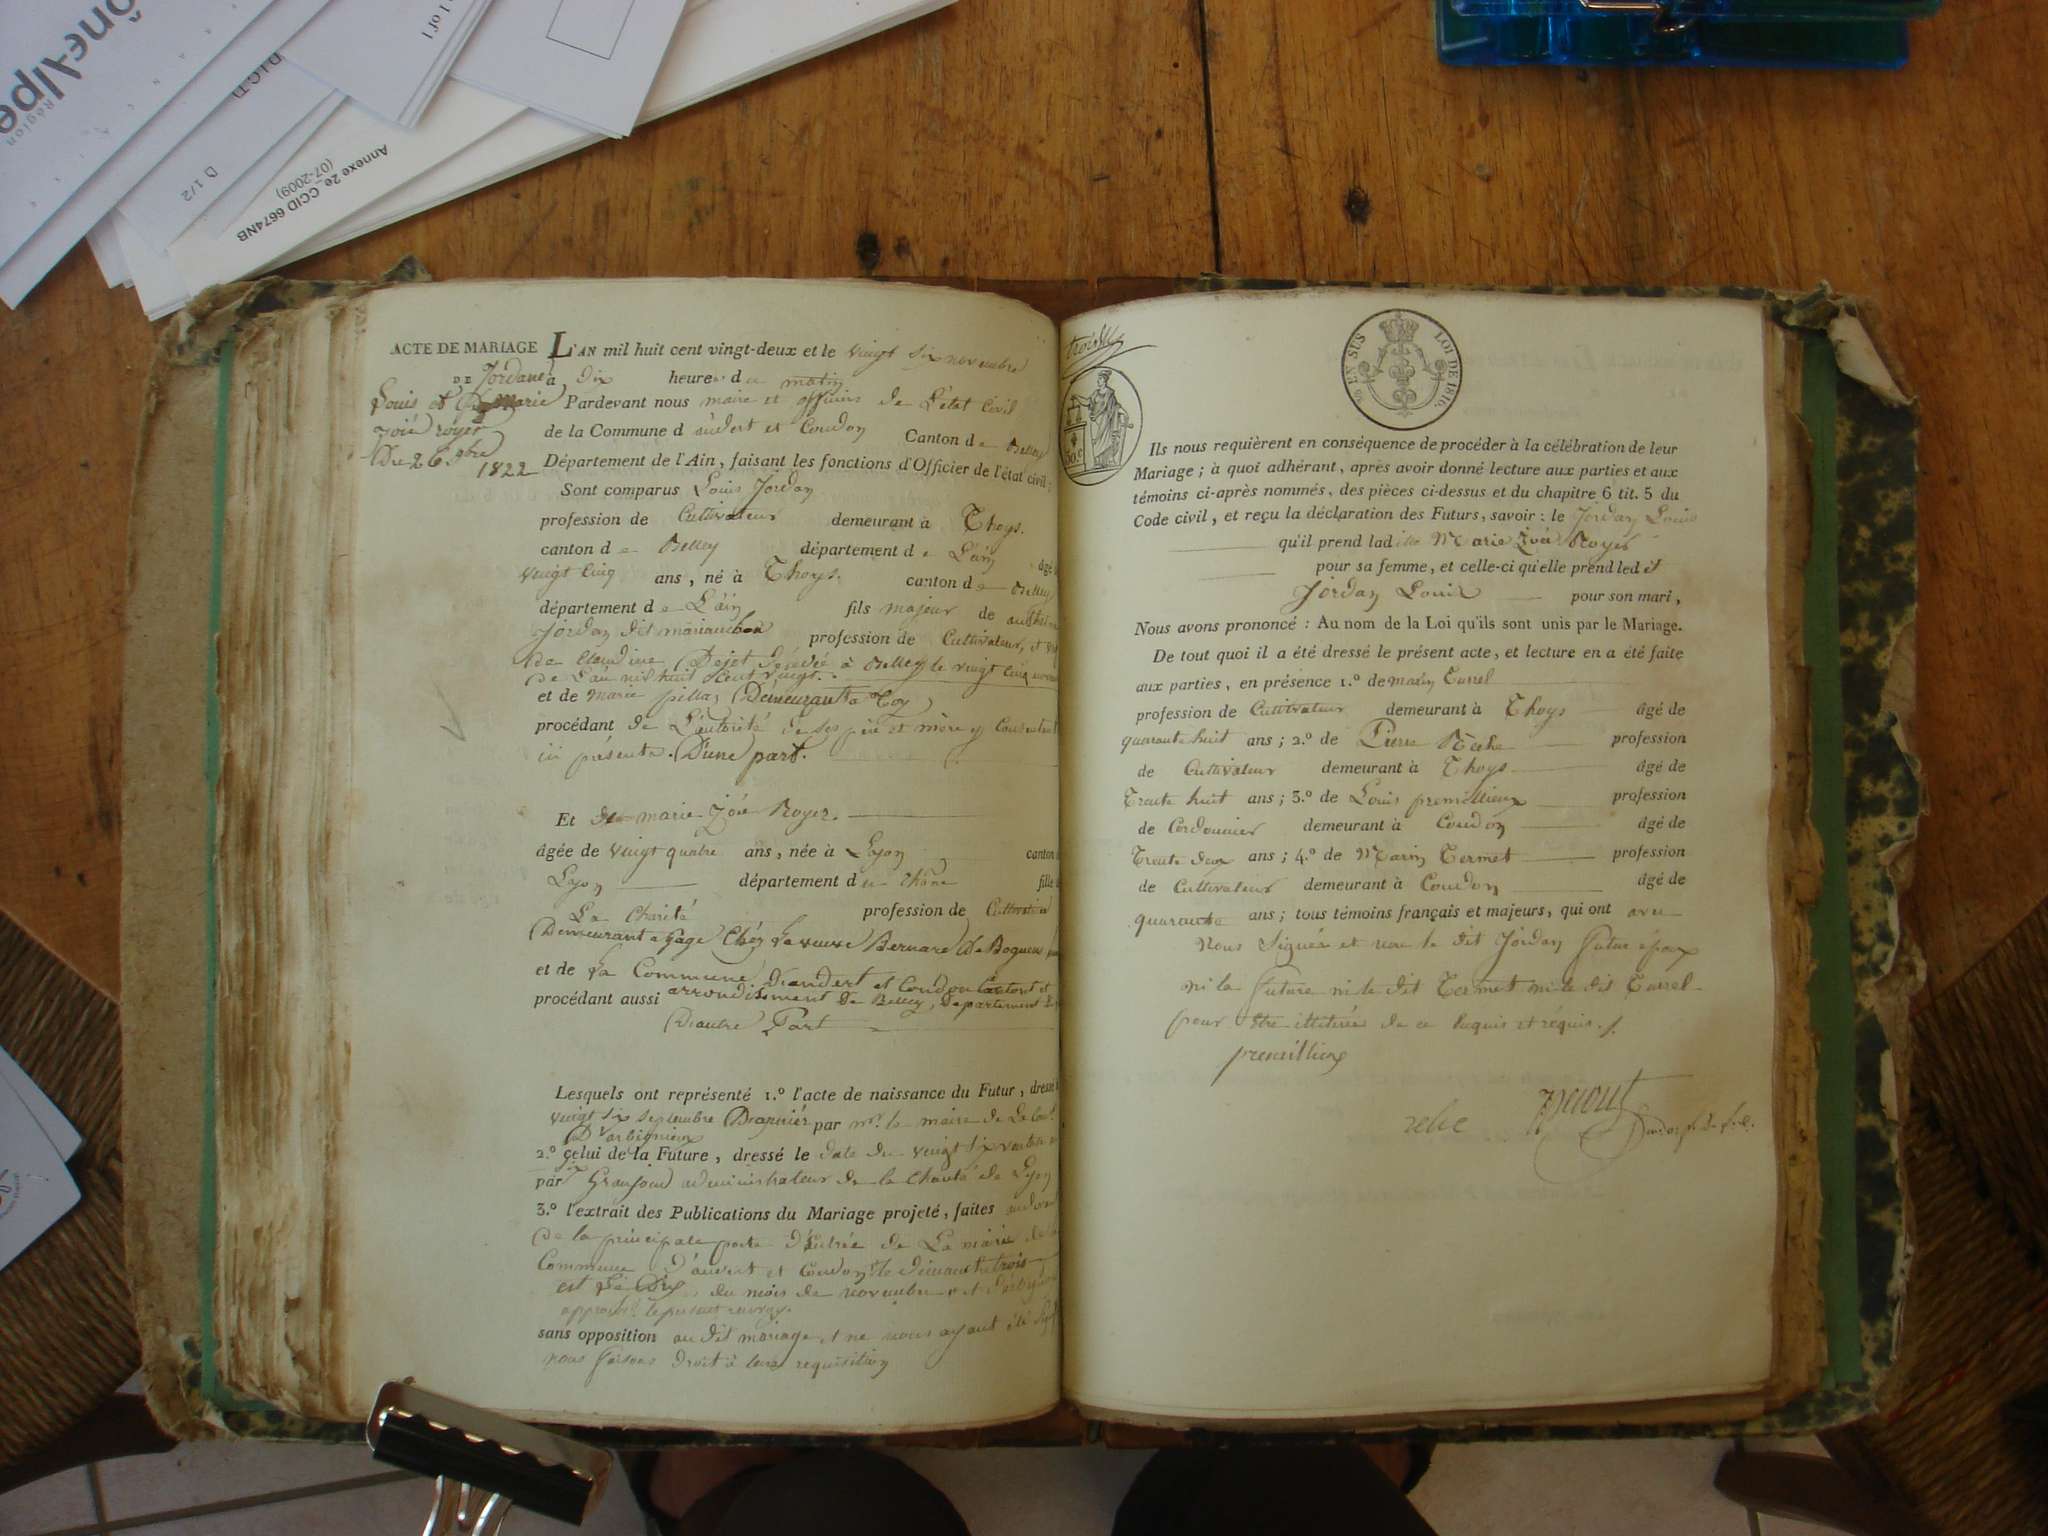 ône-Alpe
Région
1 of 1
D I C T)
D 1/2
Annexe 2e_CCID 6674NB
(07-2009)
ACTE DE MARIAGE
DE Jordan
Louis et Marie
Zoïé royer
Du 26 9bre
1822
L'AN mil huit cent vingt-deux et le vingt six novembre
à dix heures du matin
Pardevant nous maire et officier de L'état Civil
de la Commune d'andert et Condon Canton de Belley
Département de l'Ain, faisant les fonctions d'Officier de l'état civil:
Sont comparus Louis Jordan
profession de Cultivateur demeurant à Thoys.
canton de Belley département de L'ain âgé
vingt cinq ans, né à Thoys. canton de Belley
département de L'ain fils majeur de
Jordan dit profession de Cultivateur, et
de Claudine Dejet Décédée à Belley le vingt cinq
De L'an mil huit Cent vingt.
et de marie Demeurant a Toy
procédant de L'autorité de ses père et mère
ici présents. D'une part.
Et marie Zoïé Royer.
âgée de vingt quatre ans, née à Lyon canton
Lyon département du Rhône fille
La Charité profession de
Demeurant a gage Chéz La veuve Bernard de
et de La Commune D'andert et Condon Canton et
procédant aussi arrondissement de Belley, Département
D'autre Part
Lesquels ont représenté 1.º l'acte de naissance du Futur, dressé
vingt six septembre Dernier par mr. le maire de
D'arbignieux
2.º celui de la Future, dressé le date du vingt six
par administrateur de la Charité de Lyon
3.º l'extrait des Publications du Mariage projeté, faites
de la principale porte d'Entrée de La mairie de
Commune d'andert et Condon le dimanche trois
est Le Dix, du mois de novembre
approuvé
sans opposition au dit mariage, et ne nous ayant été
nous faisons droit à leur requisition
trois
30.c
EN SUS LOI DE 1816.
Ils nous requièrent en conséquence de procéder à la célébration de leur
Mariage; à quoi adhérant, après avoir donné lecture aux parties et aux
témoins ci-après nommés, des pièces ci-dessus et du chapitre 6 tit. 5 du
Code civil, et reçu la déclaration des Futurs, savoir: le Jordan Louis
qu'il prend ladite Marie Zoïé Royer
pour sa femme, et celle-ci qu'elle prend ledit
Jordan Louis pour son mari,
Nous avons prononcé: Au nom de la Loi qu'ils sont unis par le Mariage.
De tout quoi il a été dressé le présent acte, et lecture en a été faite
aux parties, en présence 1.º de marin
profession de Cultivateur demeurant à Thoys âgé de
quarante huit ans; 2.º de Pierre Reche profession
de Cultivateur demeurant à Thoys âgé de
Trente huit ans; 3.º de Louis premillieux profession
de Cordonnier demeurant à Condon âgé de
Trente deux ans; 4.º de Marin Termet profession
de Cultivateur demeurant à Condon âgé de
quarante ans; tous témoins français et majeurs, qui ont avec
Nous Signés et non le dit Jordan futur époux
ni la future ni le dit Termet ni le dit
pour être illiterés de ce Enquis et réquis.
premillieux
reche